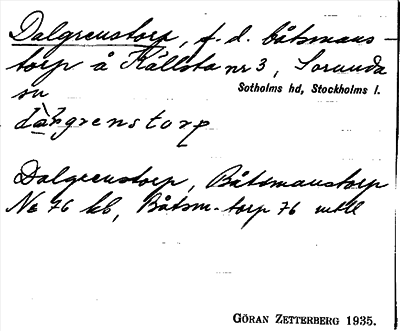 Dalgrenstorp, f. d. båtsmans-
torp å Källsta nr 3, Sorunda
sn
Sotholms hd, Stockholms l.
dàlgrenstorp
Dalgrenstorp, Båtsmanstorp
№ 76 kb, Båtsm.-torp 76 mtll
GÖRAN ZETTERBERG 1935.